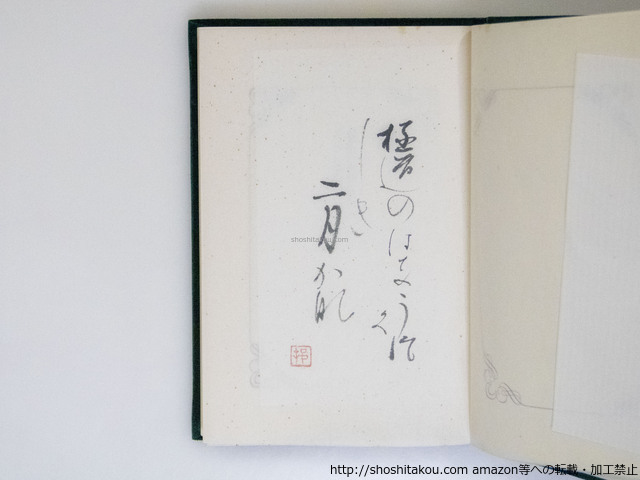 極道のはなうつく
しき
二月
かな
shoshitakou.com
http://shoshitakou.com amazon等への転載・加工禁止